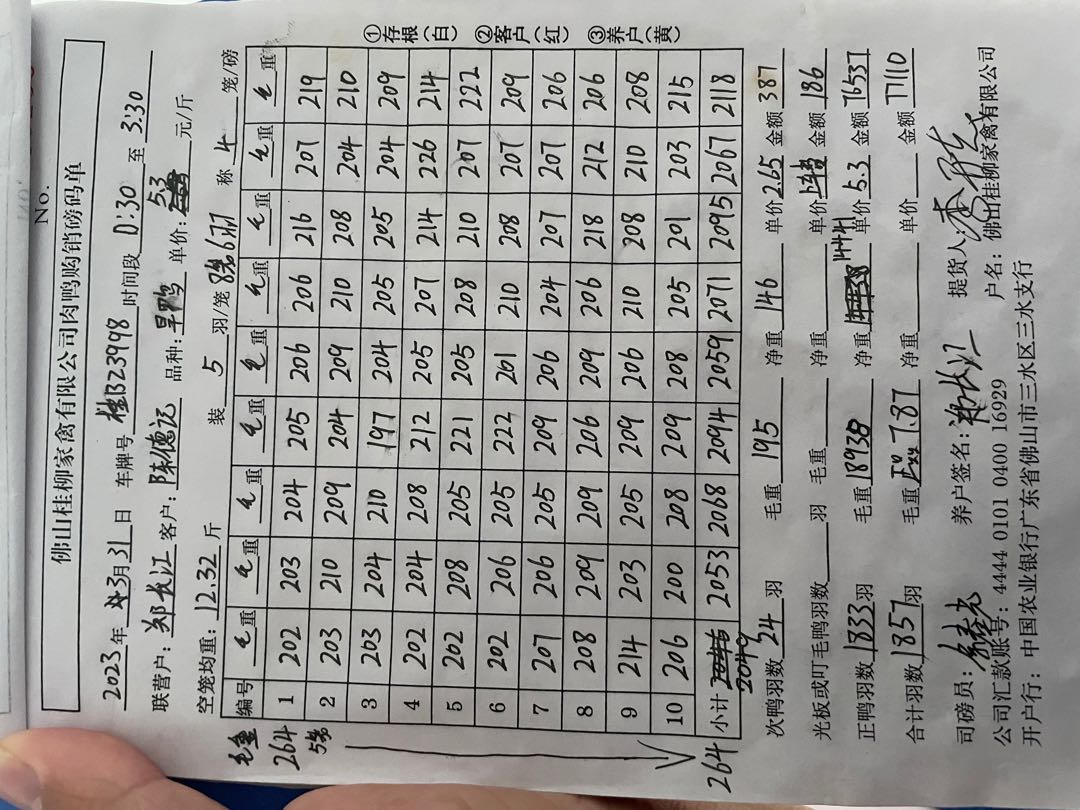 No.
佛山桂柳家禽有限公司肉鸭购销磅码单
2023年3月31日 车牌号 桂B23998 时间段 D1:30 至 3:30
联营户: 郑长江 客户: 陈德远 品种: 单价: 5.3 元/斤
空笼均重: 12.32 斤 装 5 羽/笼 称 4 笼/磅
编号 毛重 毛重 毛重 毛重 毛重 毛重 毛重 毛重 毛重
1 202 203 204 205 206 206 216 207 219
2 203 210 209 204 209 210 208 204 210
3 203 204 210 197 204 205 205 204 209
4 202 204 208 212 205 207 214 226 214
5 202 208 205 221 205 208 210 207 222
6 202 206 205 222 201 210 208 207 209
7 207 206 205 209 206 204 207 207 206
8 208 209 209 206 209 206 218 212 206
9 214 203 205 209 206 210 208 210 208
10 206 200 208 209 208 205 201 203 215
小计 2049 2053 2068 2094 2059 2071 2095 2067 2118
毛重
264
264
①存根(白) ②客户(红) ③养户(黄)
次鸭羽数 24 羽 毛重 195 净重 146 单价 2.65 金额 387
光板或叮毛鸭羽数 羽 毛重 净重 单价 金额 186
正鸭羽数 1833 羽 毛重 18938 净重 14441 单价 5.3 金额 76537
合计羽数 1857 羽 毛重 7.87 净重 单价 金额 77110
司磅员: 养户签名: 提货人:
公司汇款账号: 4444 0101 0400 16929 户名: 佛山桂柳家禽有限公司
开户行: 中国农业银行广东省佛山市三水区三水支行